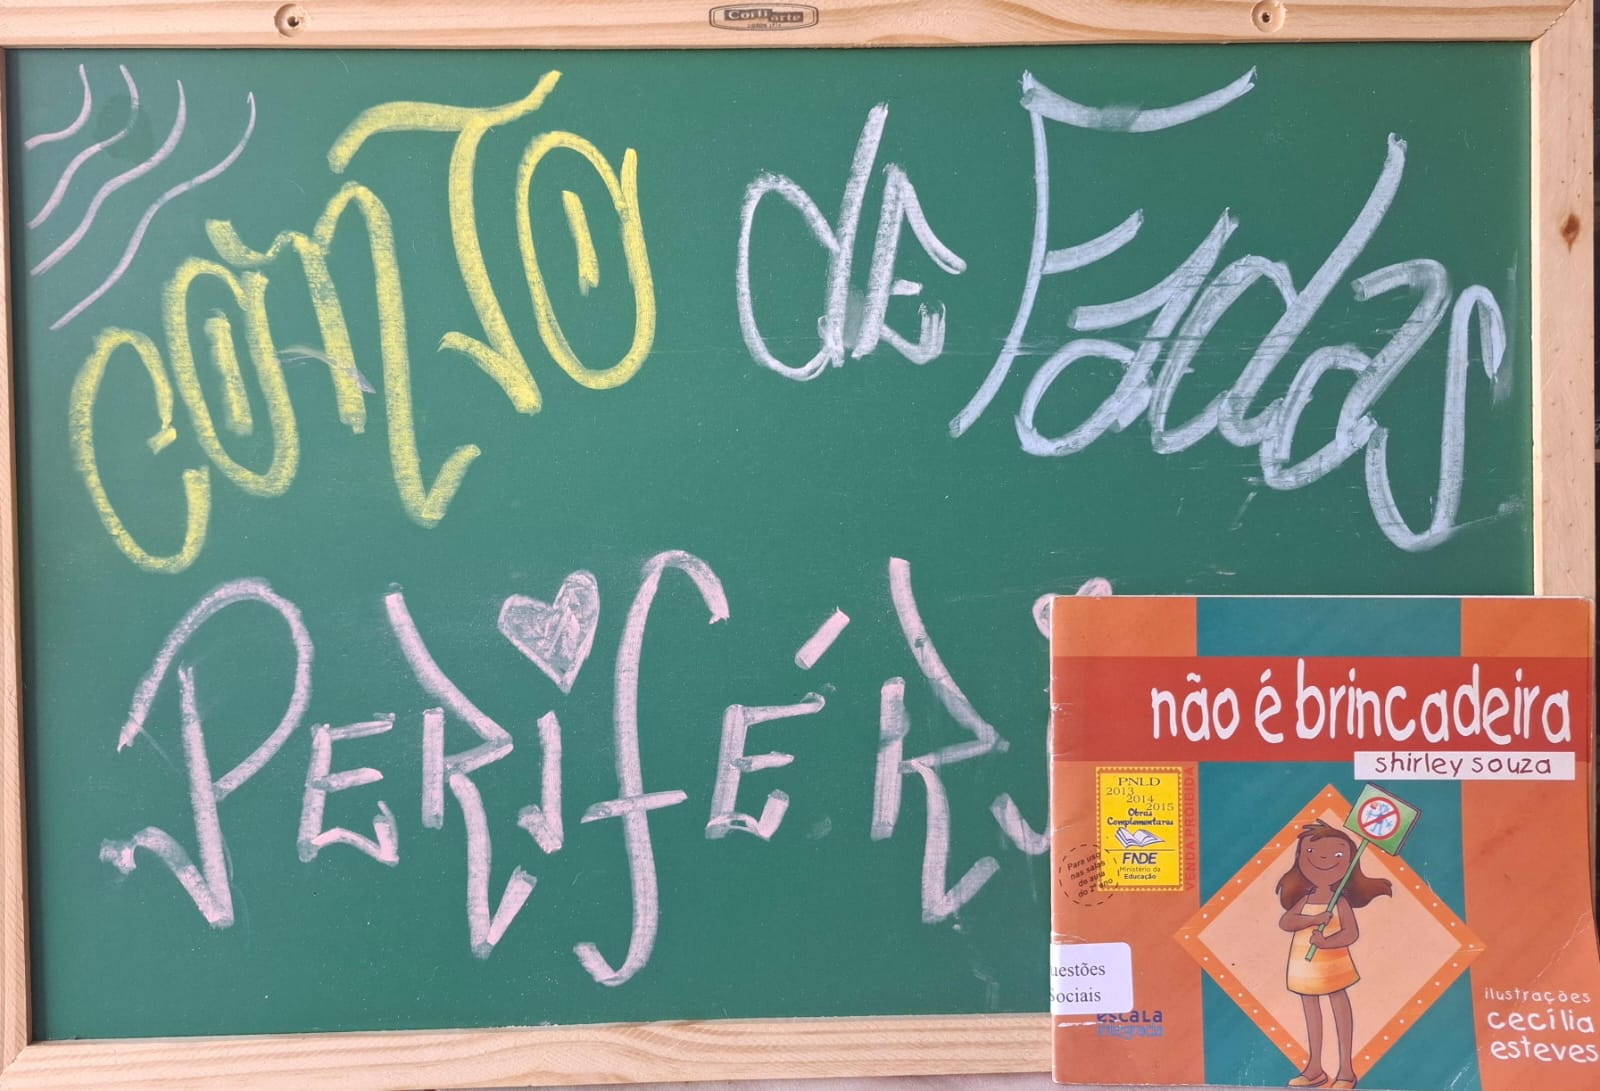 Corti arte
CONTO de Fadas
PERIFÉRI
não é brincadeira
shirley souza
PNLD
2013
2014
2015
Obras
Complementares
FNDE
Ministério da
Educação
VENDA PROIBIDA
Para uso
nas salas
de aula
do 2º ano
uestões
Sociais
escala
integrada
ilustrações
cecília
esteves